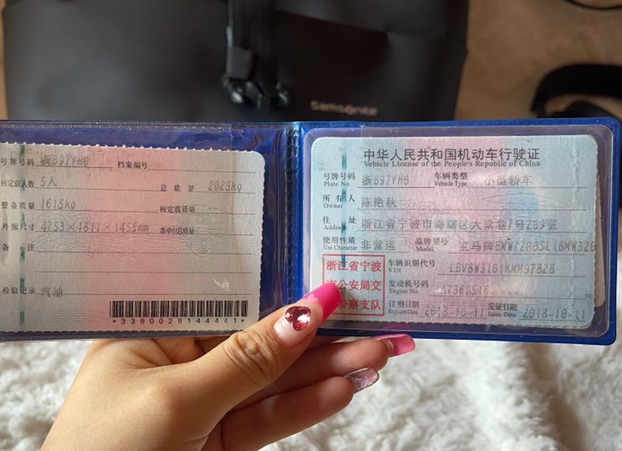 Samsonite
号牌号码 浙B97YH6 档案编号
核定载人数 5人 总质量 2025kg
整备质量 1615kg 核定载质量
外廓尺寸 4753×1811×1455mm 准牵引总质量
备注
检验记录 汽油
*3390029144441*
中华人民共和国机动车行驶证
Vehicle License of the People's Republic of China
号牌号码 浙B97YH6 车辆类型 小型轿车
Plate No. Vehicle Type
所有人 陈艳秋
Owner
住址 浙江省宁波市海曙区大梁巷7号289室
Address
使用性质 非营运 品牌型号 宝马牌BMW7203SL(BMW328
Use Character Model
浙江省宁波 车辆识别代号
VIN
市公安局交 发动机号码
Engine No.
警察支队 注册日期 2018-10-11 发证日期 2018-10-11
Register Date Issue Date